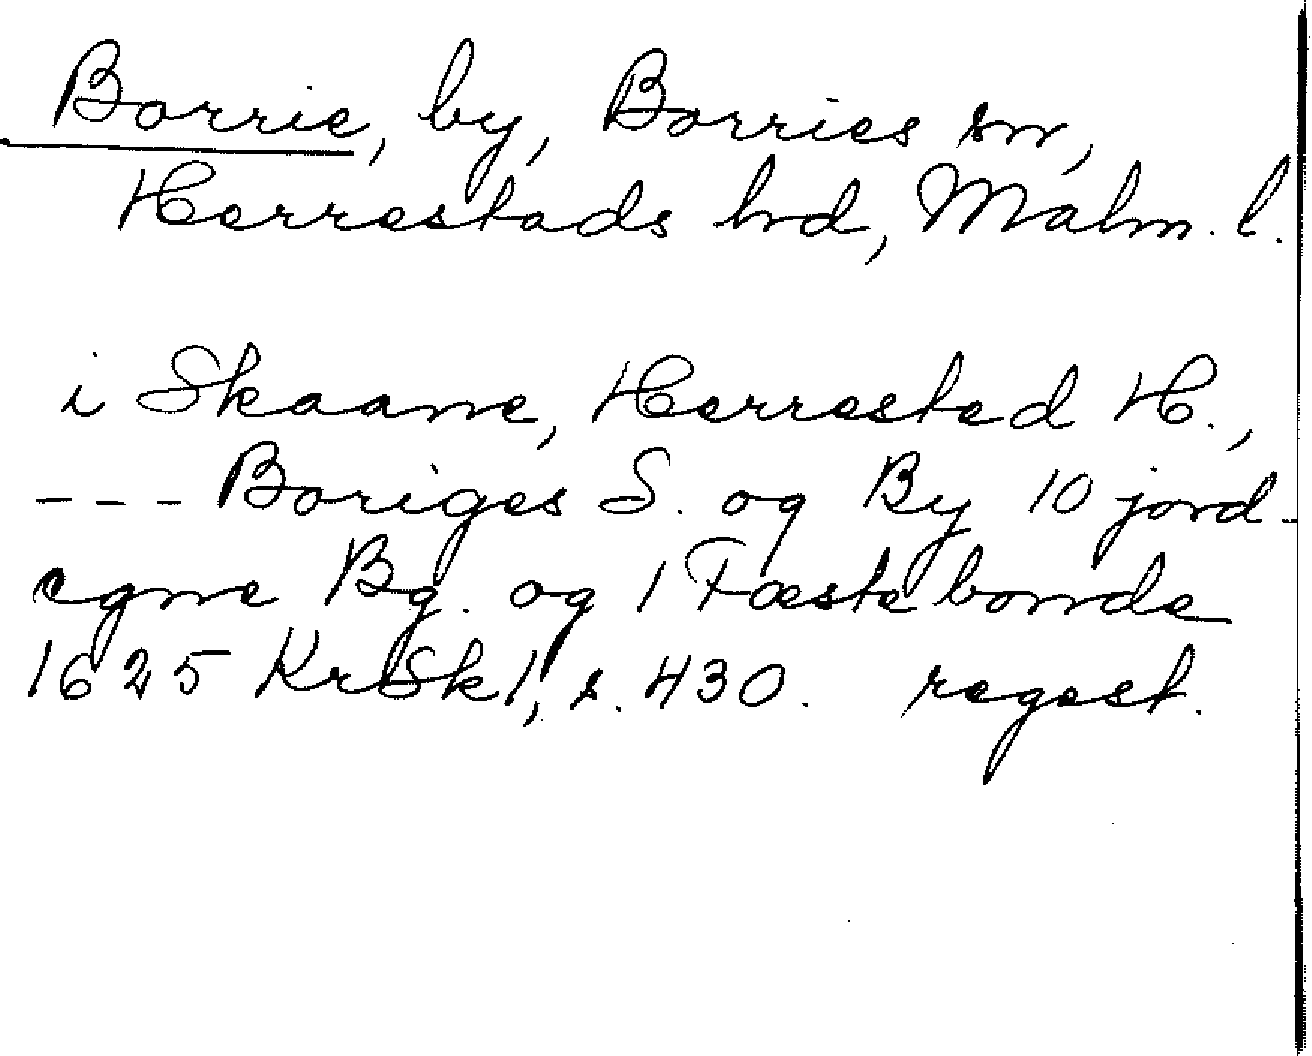 Borrie, by, Borries sn,
Herrestads hd, Malm. l.
i Skaane, Herrested H.,
--- Boriges S. og By 10 jord-
egne Bg. og 1 Fæstebonde
1625 KrSk 1, s. 430. regest.